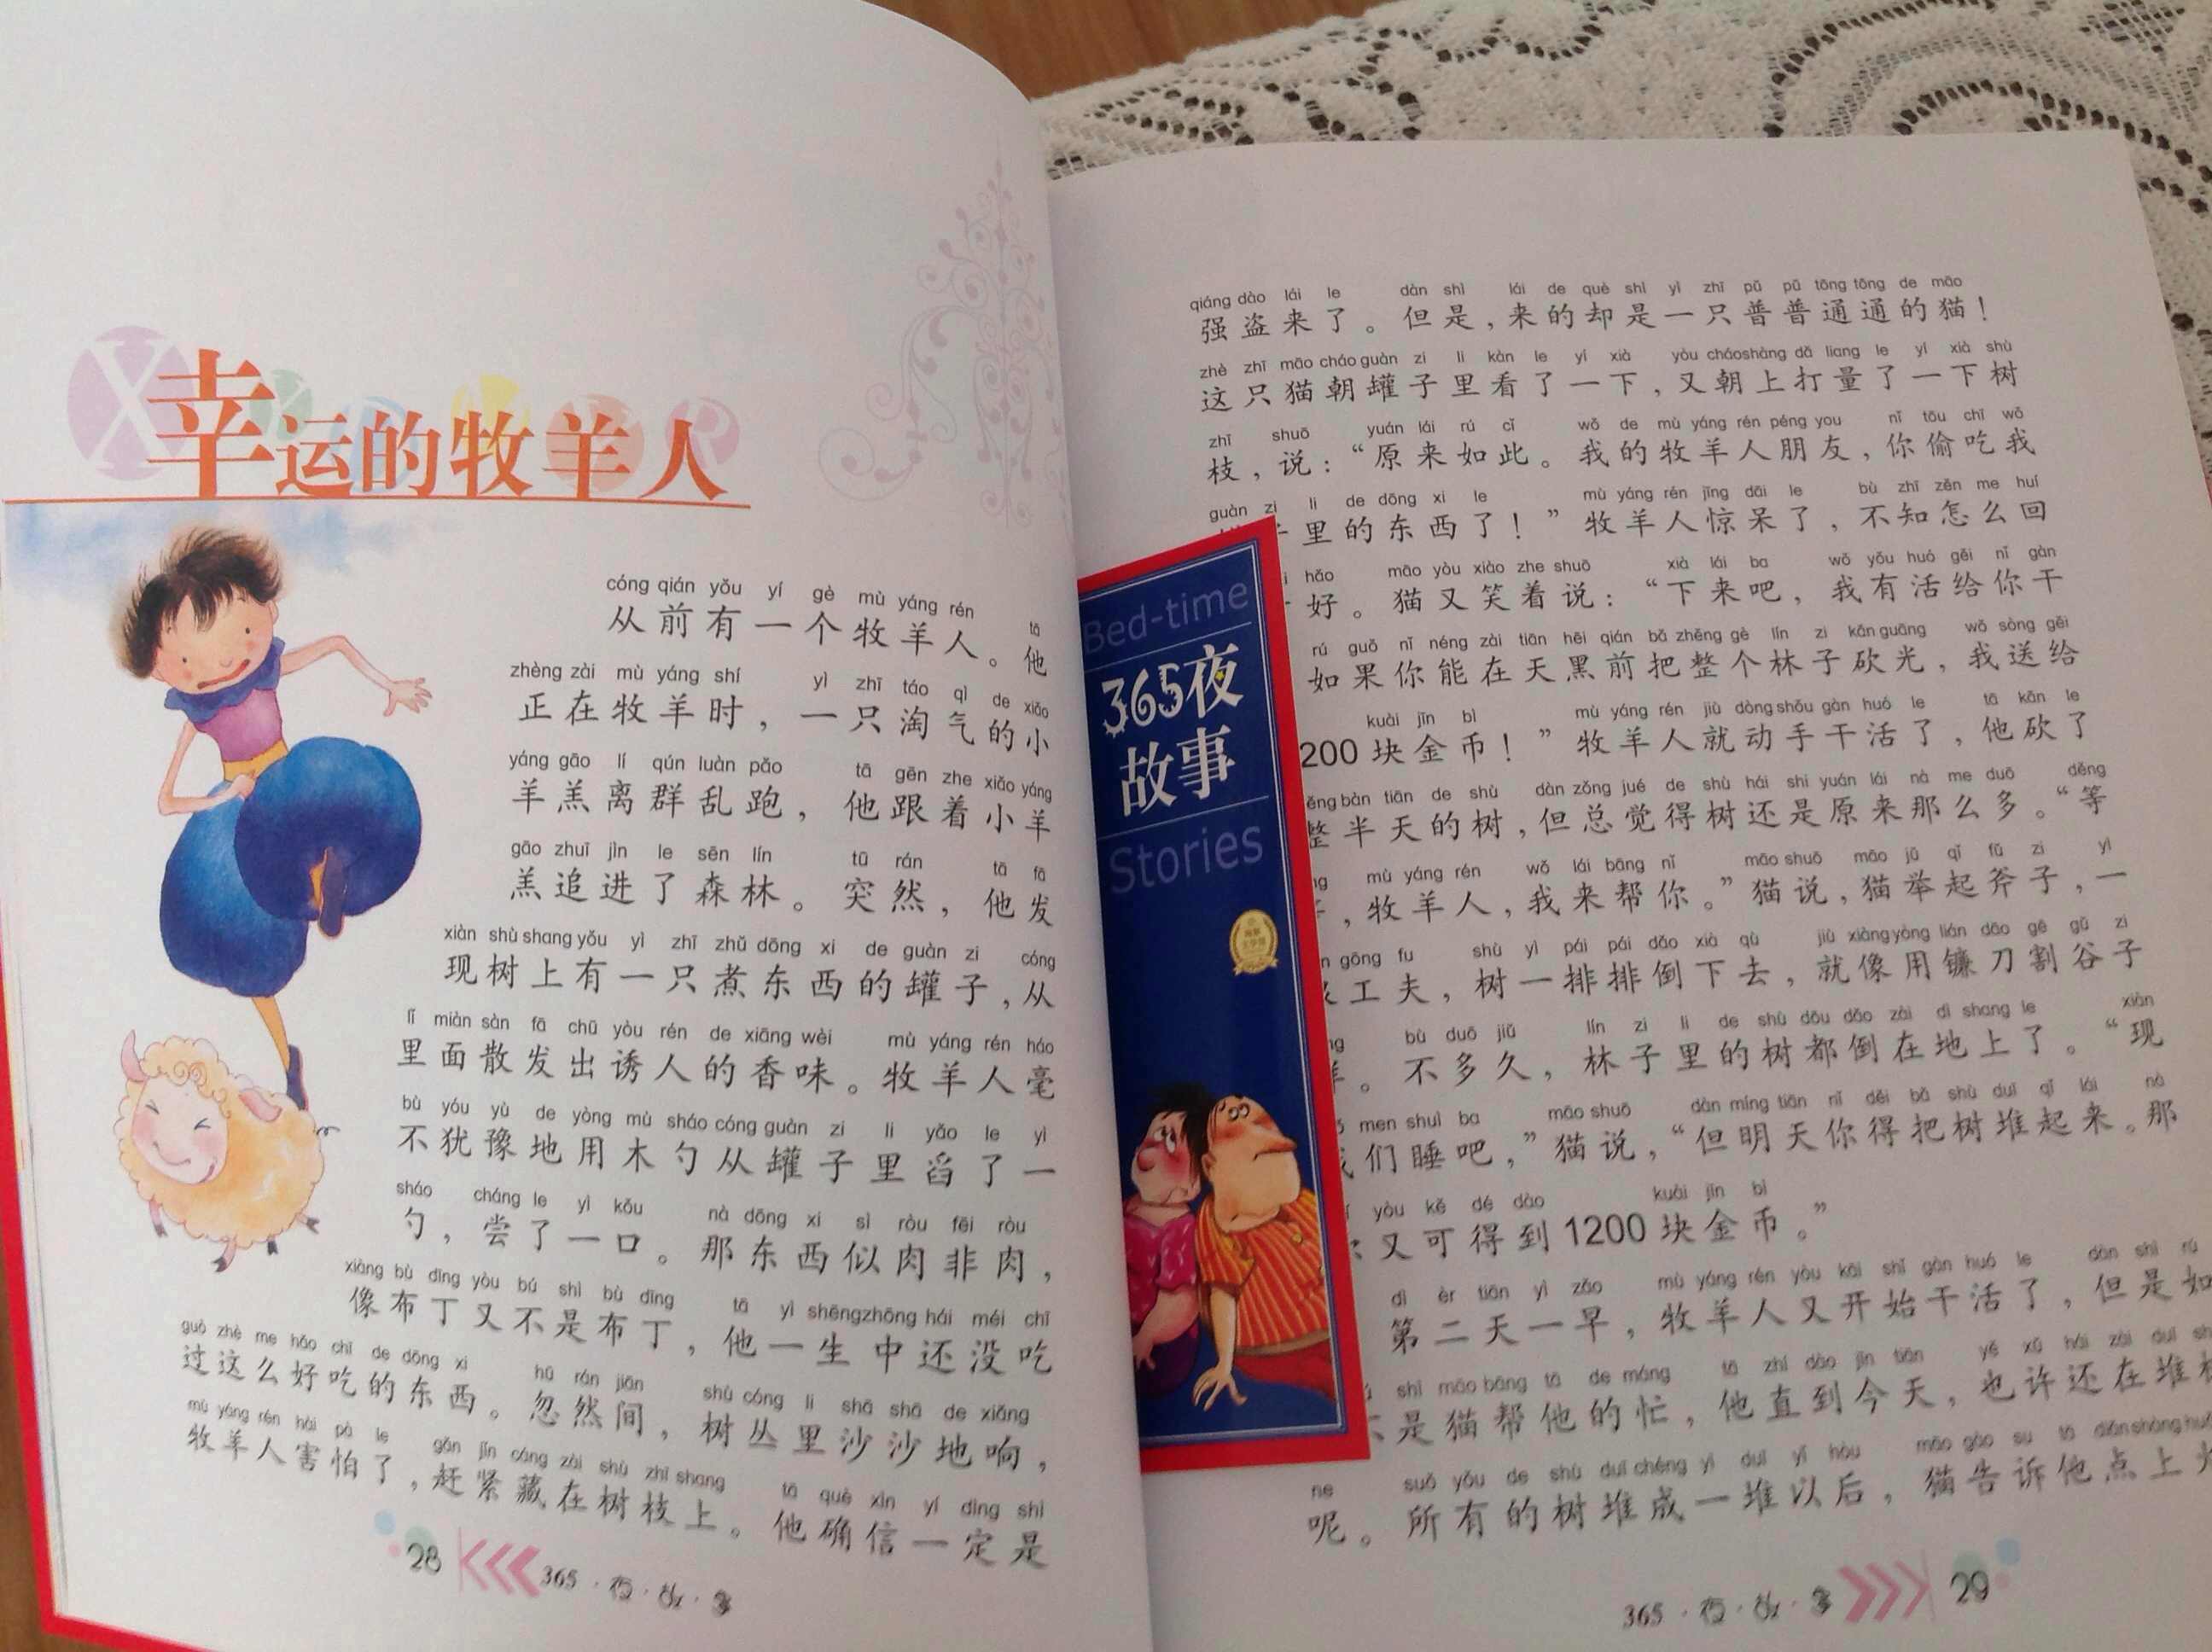 幸运的牧羊人
cóng qián yǒu yí gè mù yáng rén tā
从前有一个牧羊人。他
zhèng zài mù yáng shí yì zhī táo qì de xiǎo
正在牧羊时，一只淘气的小
yáng gāo lí qún luàn pǎo tā gēn zhe xiǎo yáng
羊羔离群乱跑，他跟着小羊
gāo zhuī jìn le sēn lín tū rán tā fā
羔追进了森林。突然，他发
xiàn shù shang yǒu yì zhī zhǔ dōng xi de guàn zi cóng
现树上有一只煮东西的罐子，从
lǐ miàn sàn fā chū yòu rén de xiāng wèi mù yáng rén háo
里面散发出诱人的香味。牧羊人毫
bù yóu yù de yòng mù sháo cóng guàn zi li yǎo le yì
不犹豫地用木勺从罐子里舀了一
sháo cháng le yì kǒu nà dōng xi sì ròu fēi ròu
勺，尝了一口。那东西似肉非肉，
xiàng bù dīng yòu bú shì bù dīng tā yì shēng zhōng hái méi chī
像布丁又不是布丁，他一生中还没吃
guò zhè me hǎo chī de dōng xi hū rán jiān shù cóng li shā shā de xiǎng
过这么好吃的东西。忽然间，树丛里沙沙地响，
mù yáng rén hài pà le gǎn jǐn cáng zài shù zhī shang tā què xìn yí dìng shì
牧羊人害怕了，赶紧藏在树枝上。他确信一定是
28
365·夜·故·事
qiáng dào lái le dàn shì lái de què shì yì zhī pǔ pǔ tōng tōng de māo
强盗来了。但是，来的却是一只普普通通的猫！
zhè zhī māo cháo guàn zi li kàn le yí xià yòu cháo shàng dǎ liang le yí xià shù
这只猫朝罐子里看了一下，又朝上打量了一下树
zhī shuō yuán lái rú cǐ wǒ de mù yáng rén péng you nǐ tōu chī wǒ
枝，说：“原来如此。我的牧羊人朋友，你偷吃我
guàn zi li de dōng xi le mù yáng rén jīng dāi le bù zhī zěn me huí
里的东西了！”牧羊人惊呆了，不知怎么回
hǎo māo yòu xiào zhe shuō xià lái ba wǒ yǒu huó gěi nǐ gàn
好。猫又笑着说：“下来吧，我有活给你干
rú guǒ nǐ néng zài tiān hēi qián bǎ zhěng gè lín zi kǎn guāng wǒ sòng gěi
如果你能在天黑前把整个林子砍光，我送给
kuài jīn bì mù yáng rén jiù dòng shǒu gàn huó le tā kǎn le
200块金币！”牧羊人就动手干活了，他砍了
bàn tiān de shù dàn zǒng jué de shù hái shi yuán lái nà me duō děng
整半天的树，但总觉得树还是原来那么多。“等
mù yáng rén wǒ lái bāng nǐ māo shuō māo jǔ qǐ fǔ zi yì
，牧羊人，我来帮你。”猫说，猫举起斧子，一
gōng fu shù yì pái pái dǎo xià qù jiù xiàng yòng lián dāo gē gǔ zi
工夫，树一排排倒下去，就像用镰刀割谷子
bù duō jiǔ lín zi li de shù dōu dǎo zài dì shang le xiàn
。不多久，林子里的树都倒在地上了。“现
men shuì ba māo shuō dàn míng tiān nǐ děi bǎ shù duī qǐ lái nà
们睡吧，”猫说，“但明天你得把树堆起来。那
yòu kě dé dào kuài jīn bì
又可得到1200块金币。”
dì èr tiān yì zǎo mù yáng rén yòu kāi shǐ gàn huó le dàn shì rú
第二天一早，牧羊人又开始干活了，但是如
shì māo bāng tā de máng tā zhí dào jīn tiān yě xǔ hái zài duī
是猫帮他的忙，他直到今天，也许还在堆
ne suǒ yǒu de shù duī chéng yì duī yǐ hòu māo gào su tā diǎn shàng
呢。所有的树堆成一堆以后，猫告诉他点上
365·夜·故·事
29
Bed-time
365夜
故事
Stories